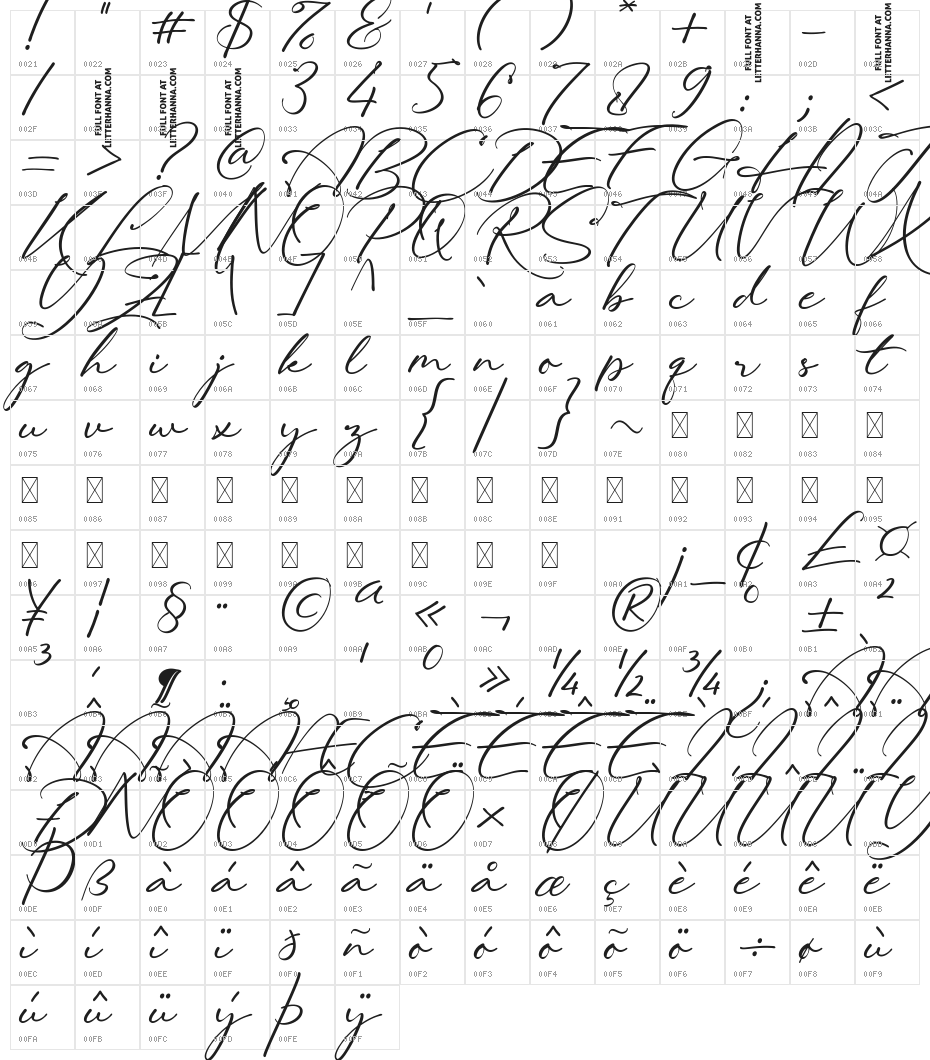 ! " # $ % & ' ( ) * + FULL FONT AT LITTERHANNA.COM - FULL FONT AT LITTERHANNA.COM
0021 0022 0023 0024 0025 0026 0027 0028 002A 002B 002D
/ FULL FONT AT LITTERHANNA.COM FULL FONT AT LITTERHANNA.COM FULL FONT AT LITTERHANNA.COM 3 4 5 6 7 8 9 : ; <
002F 0033 0034 0035 0036 0037 0039 003A 003B 003C
= > ? @ A B C D E F G H I J
003D 003E 003F 0040 0042 0044 0046 004A
K L M N O P Q R S T U V W X
004B 004D 004E 004F 0050 0051 0052 0053 0054 0055 0056 0057 0058
Y Z [ \ ] ^ _ ` a b c d e f
005B 005C 005D 005E 005F 0060 0061 0062 0063 0064 0065 0066
g h i j k l m n o p q r s t
0067 0068 0069 006A 006B 006C 006D 006E 006F 0070 0071 0072 0073 0074
u v w x y z { | } ~
0075 0076 0077 0078 0079 007A 007B 007C 007D 007E 0080 0082 0083 0084
0085 0086 0087 0088 0089 008A 008B 008C 008E 0091 0092 0093 0094 0095
¡ ¢ £ ¤
0096 0097 0098 0099 009A 009B 009C 009E 009F 00A0 00A1 00A2 00A3 00A4
¥ ¦ § ¨ © ª « ¬ ® ¯ ° ± ²
00A5 00A6 00A7 00A8 00A9 00AA 00AB 00AC 00AD 00AE 00AF 00B1 00B2
³ ´ ¶ · ¸ ¹ º » ¼ ½ ¾ ¿ À Á
00B3 00B9 00BA 00BF
Â Ã Ä Å Æ Ç È É Ê Ë Ì Í Î Ï
00C6 00C7
Ð Ñ Ò Ó Ô Õ Ö × Ø Ù Ú Û Ü Ý
00D0 00D1 00D2 00D3 00D4 00D5 00D6 00D7
Þ ß à á â ã ä å æ ç è é ê ë
00DE 00DF 00E0 00E1 00E2 00E3 00E4 00E5 00E6 00E7 00E8 00E9 00EA 00EB
ì í î ï ð ñ ò ó ô õ ö ÷ ø ù
00EC 00ED 00EE 00EF 00F0 00F1 00F2 00F3 00F4 00F5 00F6 00F7 00F8 00F9
ú û ü ý þ ÿ
00FA 00FB 00FC 00FD 00FE 00FF